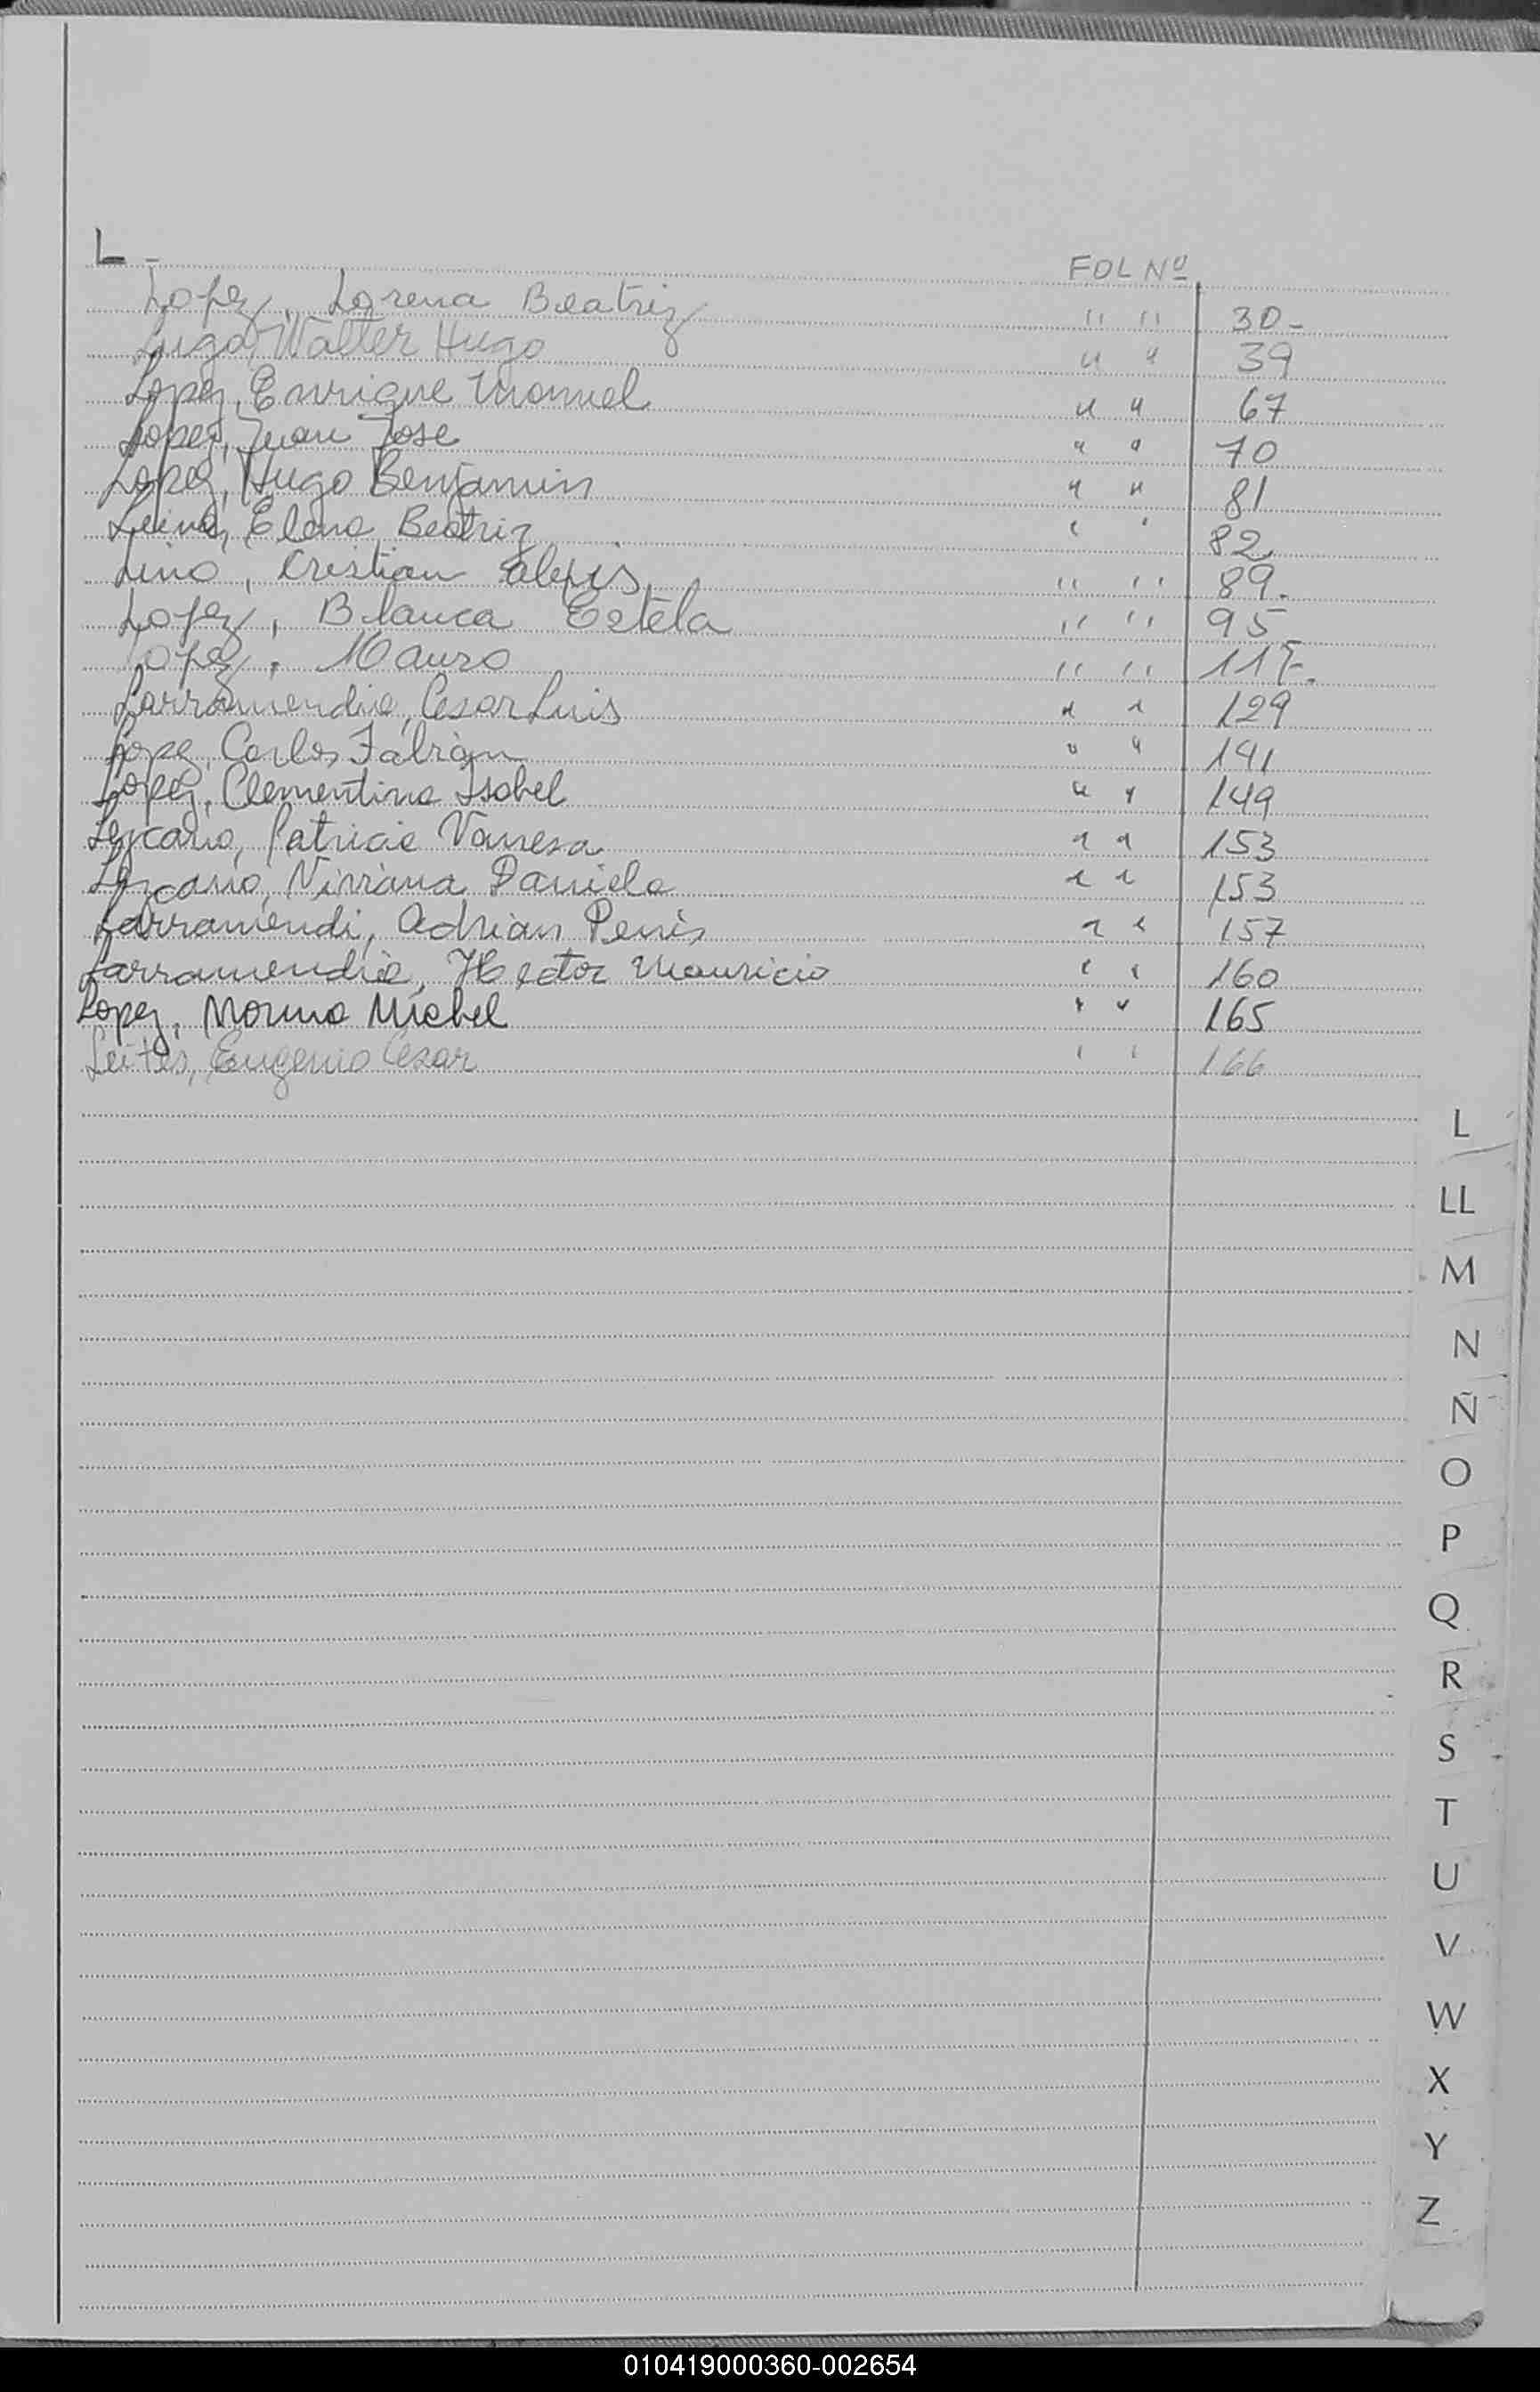 L -
FOL Nº
Lopez, Lorena Beatriz " " 30-
Lugo, Walter Hugo " " 39
Lopez, Enrique Manuel " " 67
Lopez, Juan Jose " " 70
Lopez, Hugo Benjamin " " 81
Leiva, Elena Beatriz " " 82
Lino, Cristian Alexis " " 89.
Lopez, Blanca Estela " " 95
Lopez, Mauro " "
Larramendia, Cesar Luis " " 129
Lopez, Carlos Fabián " " 141
Lopez, Clementina Isabel " " 149
Lezcano, Patricia Vanesa " " 153
Lezcano, Viviana Daniela " " 153
Larramendi, Adrian Denis " " 157
Larramendia, Hector Mauricio " " 160
Lopez, Michel " " 165
Leites, Eugenio Cesar " " 166
L
LL
M
N
Ñ
O
P
Q
R
S
T
U
V
W
X
Y
Z
010419000360-002654